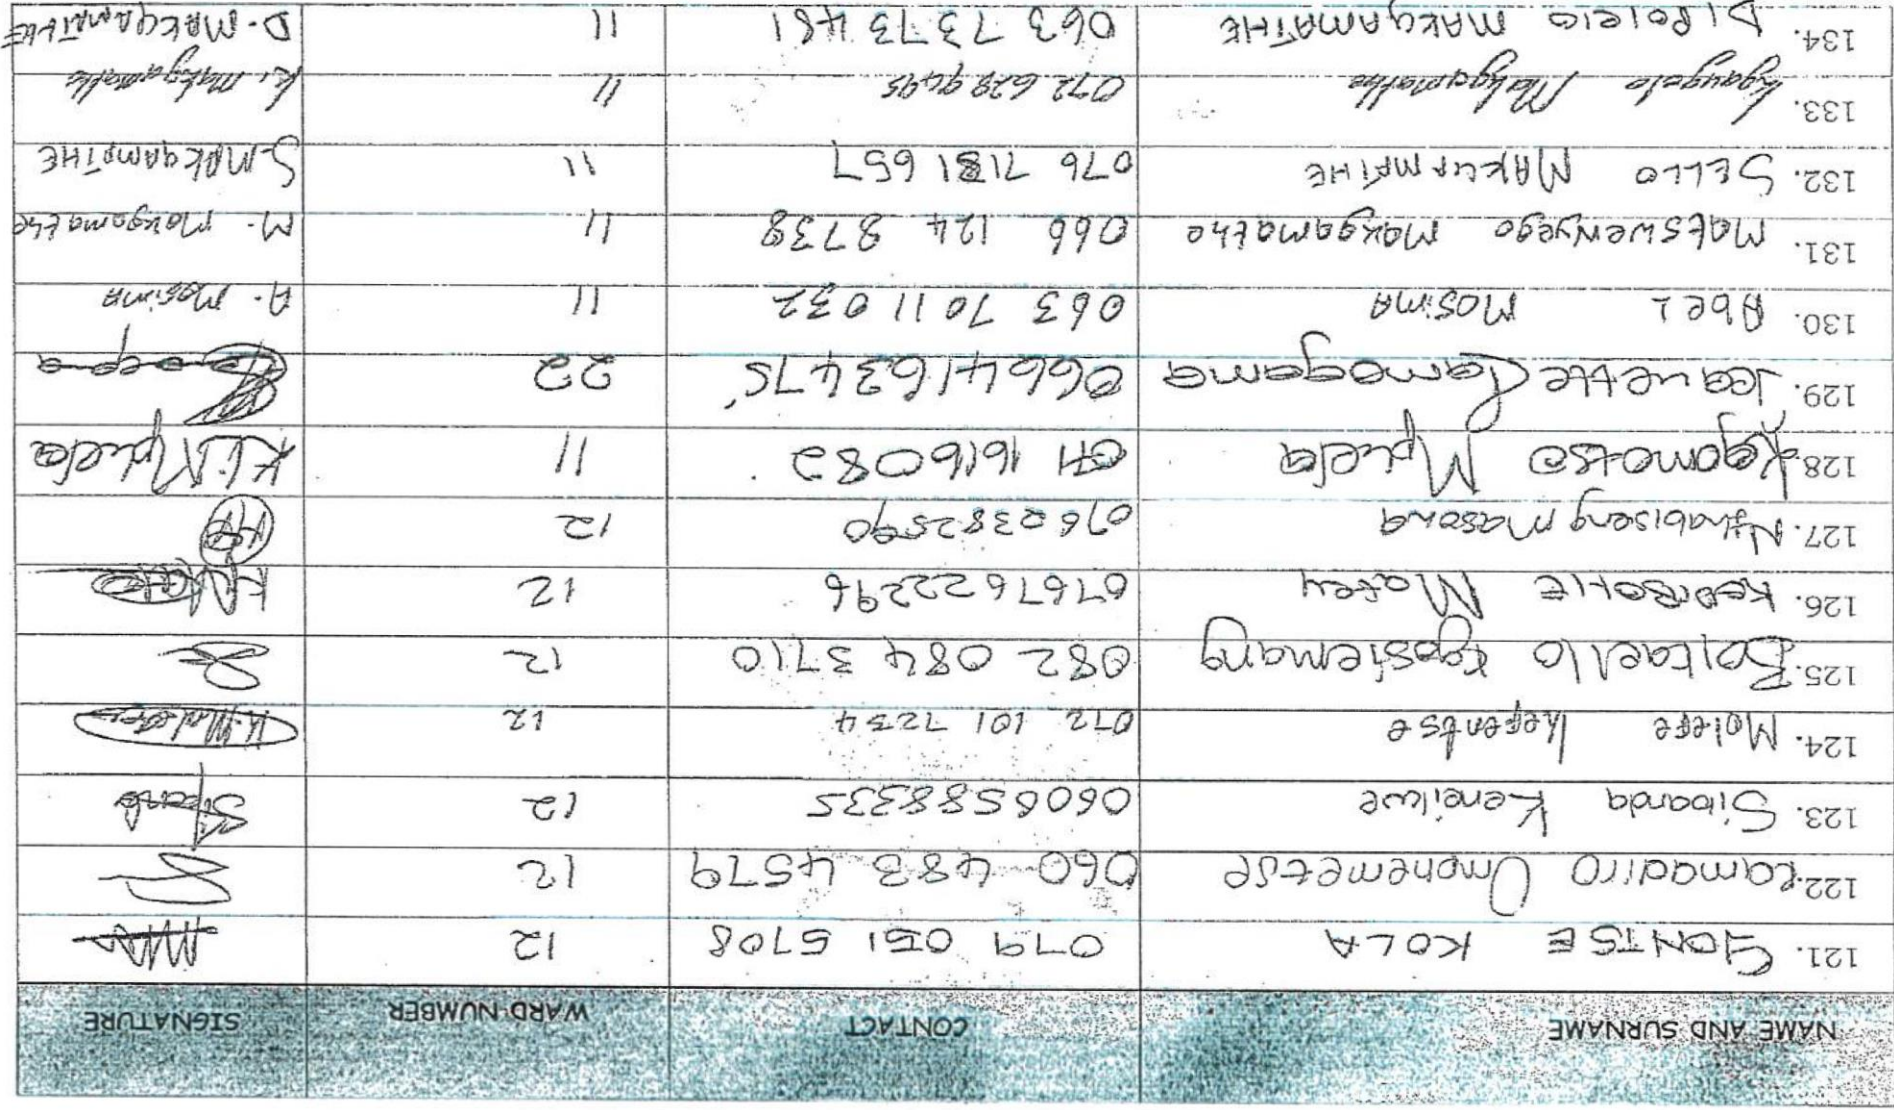 NAME AND SURNAME CONTACT WARD NUMBER SIGNATURE
121. GONTSE KOLA 079 051 5708 12
122. Ramadiro Omphemetse 060 483 4579 12
123. Sibanda Keneilwe 0606588335 12
124. Molefe Kefentse 072 101 7234 12
125. Boitaello Kgosiemang 082 084 3710 12
126. 0767622296 12
127. masona 0762382590 12
128. Kgomotso Mpuela 071 1616082 11
129. Ramogama 0664163475 22
130. Abel Mosima 063 7011 032 11 A. Mosima
131. Matswenyego Makgamathe 066 124 8738 11 M. Makgamathe
132. SELLO MAKGAMATHE 076 7181 657 11 S.MAKGAMATHE
133. Kgaugelo Makgamathe 072 629 9495 11 K. Makgamathe
134. MAKGAMATHE 063 7373 481 11 D. MAKGAMATHE